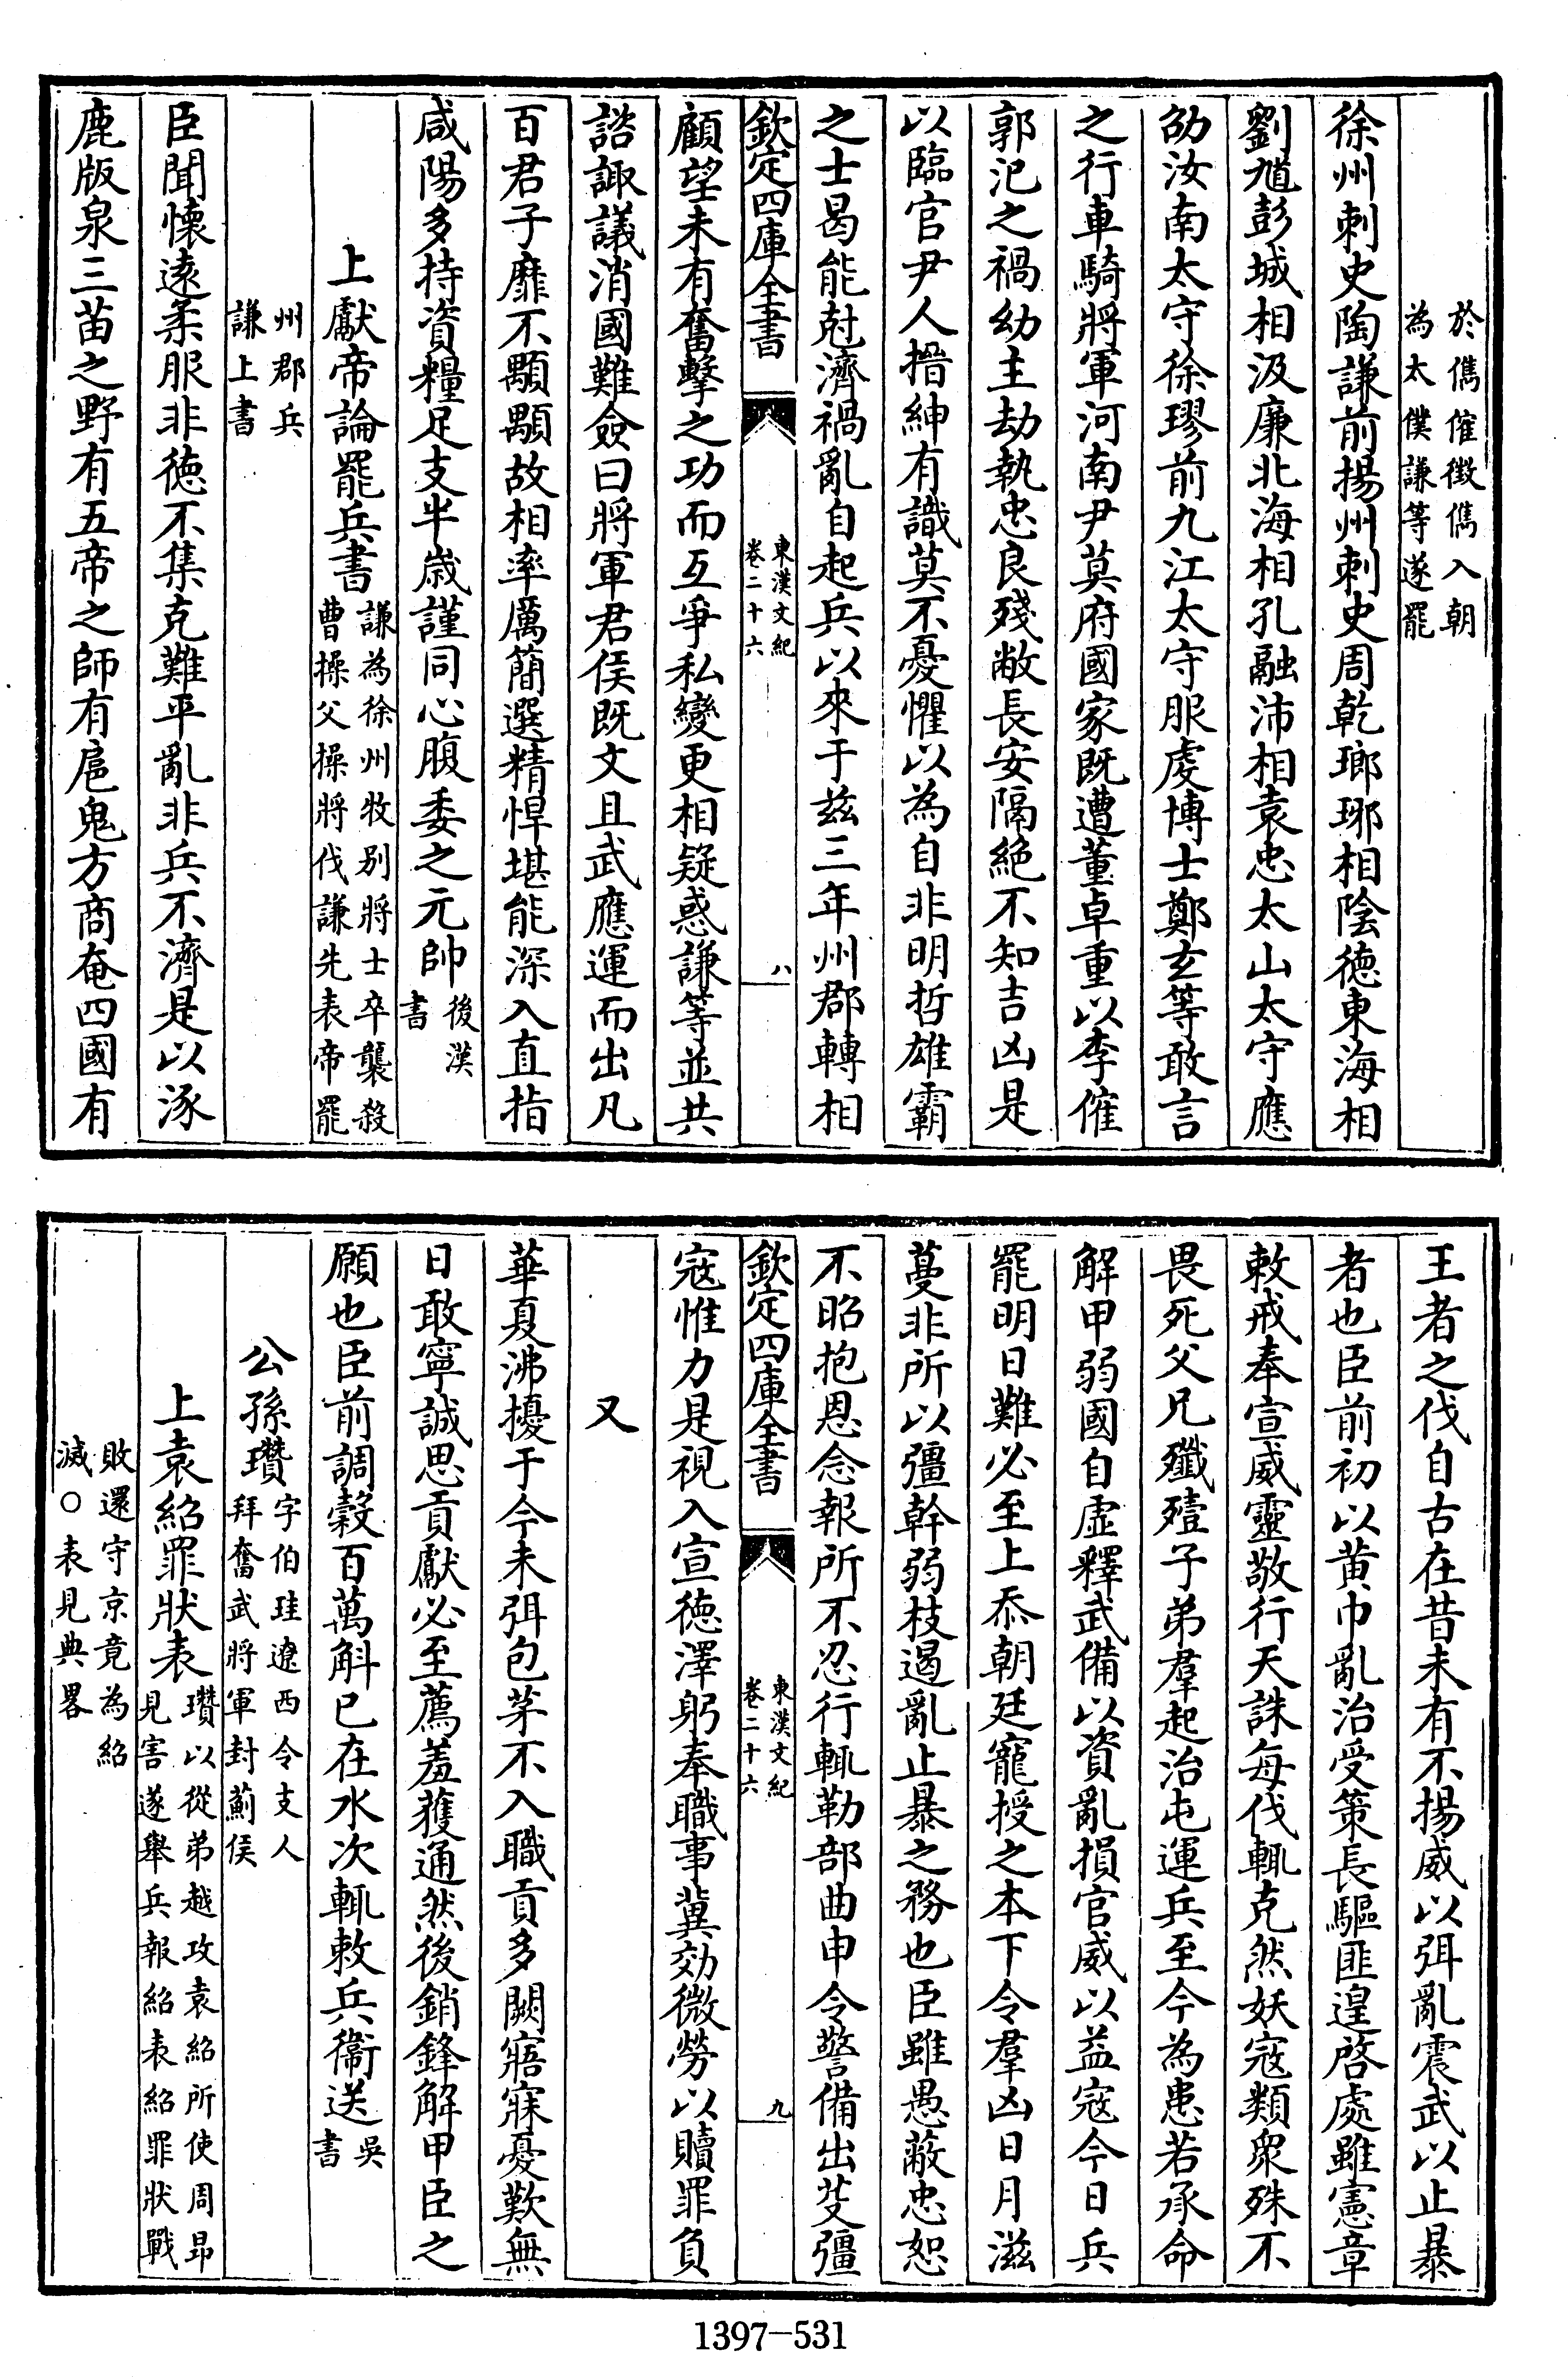 於儁傕徵儁入朝
為太僕謙等遂罷
徐州刺史陶謙前揚州刺史周乾瑯琊相陰徳東海相
劉馗彭城相汲廉北海相孔融沛相袁忠太山太守應
劭汝南太守徐璆前九江太守服䖍博士鄭玄等敢言
之行車騎將軍河南尹莫府國家既遭董卓重以李傕
郭汜之禍幼主劫執忠良殘敝長安隔絶不知吉凶是
以臨官尹人搢紳有識莫不憂懼以為自非明哲雄霸
之士曷能尅濟禍亂自起兵以來于兹三年州郡轉相
欽定四庫全書
東漢文紀
卷二十六
八
顧望未有奮擊之功而互爭私變更相疑惑謙等並共
諮諏議消國難僉曰將軍君侯既文且武應運而出凡
百君子靡不顒顒故相率厲簡選精悍堪能深入直指
咸陽多持資糧足支半嵗謹同心腹委之元帥後漢
書
上獻帝論罷兵書謙為徐州牧别將士卒襲殺
曹操父操將伐謙先表帝罷
州郡兵
謙上書
臣聞懐遠柔服非徳不集克難平亂非兵不濟是以涿
鹿版泉三苗之野有五帝之師有扈鬼方商奄四國有
王者之伐自古在昔未有不揚威以弭亂震武以止暴
者也臣前初以黄巾亂治受策長驅匪遑啓處雖憲章
敕戒奉宣威靈敬行天誅每伐輒克然妖寇類衆殊不
畏死父兄殱殪子弟羣起治屯運兵至今為患若承命
解甲弱國自虚釋武備以資亂損官威以益寇今日兵
罷明日難必至上忝朝廷寵授之本下令羣凶日月滋
蔓非所以彊幹弱枝遏亂止暴之務也臣雖愚蔽忠恕
不昭抱恩念報所不忍行輒勒部曲申令警備出芟彊
欽定四庫全書
東漢文紀
卷二十六
九
寇惟力是視入宣徳澤躬奉職事冀効微勞以贖罪負
又
華夏沸擾于今未弭包茅不入職貢多闕寤寐憂歎無
日敢寧誠思貢獻必至薦羞獲通然後銷鋒解甲臣之
願也臣前調穀百萬斛已在水次輒敕兵衞送吳
書
公孫瓚字伯珪遼西令支人
拜奮武將軍封薊侯
上袁紹罪狀表瓚以從弟越攻袁紹所使周昂
見害遂舉兵報紹表紹罪狀戰
敗還守京竟為紹
滅○表見典畧
1397—531